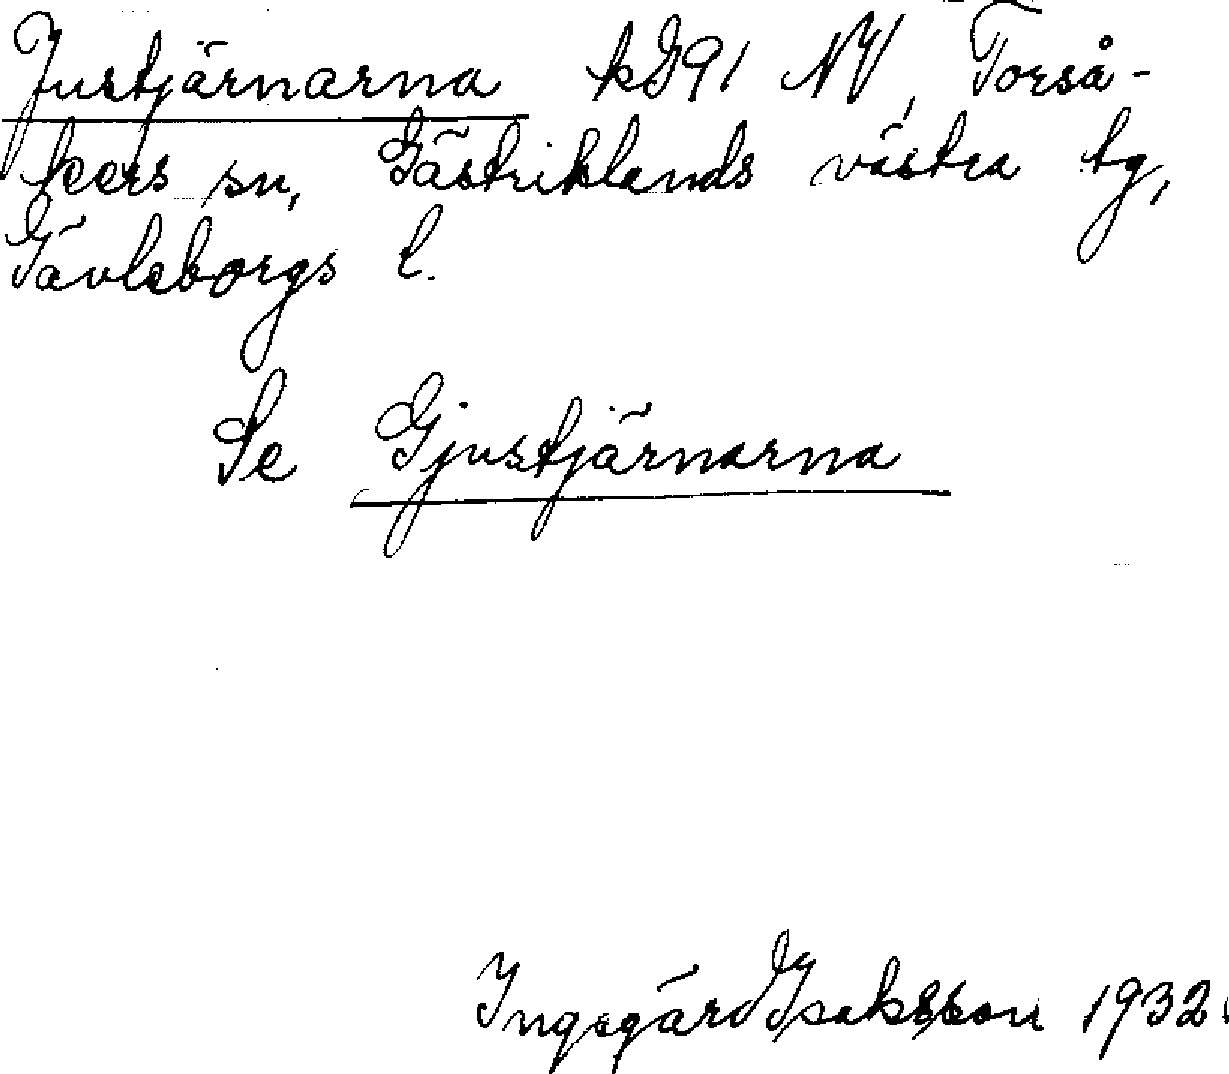 Justjärnarna kD91 NV, Torså-
kers sn, Gästriklands västra tg,
Gävleborgs l.
Se Gjustjärnarna
Ingegärd Isaksson 1932.